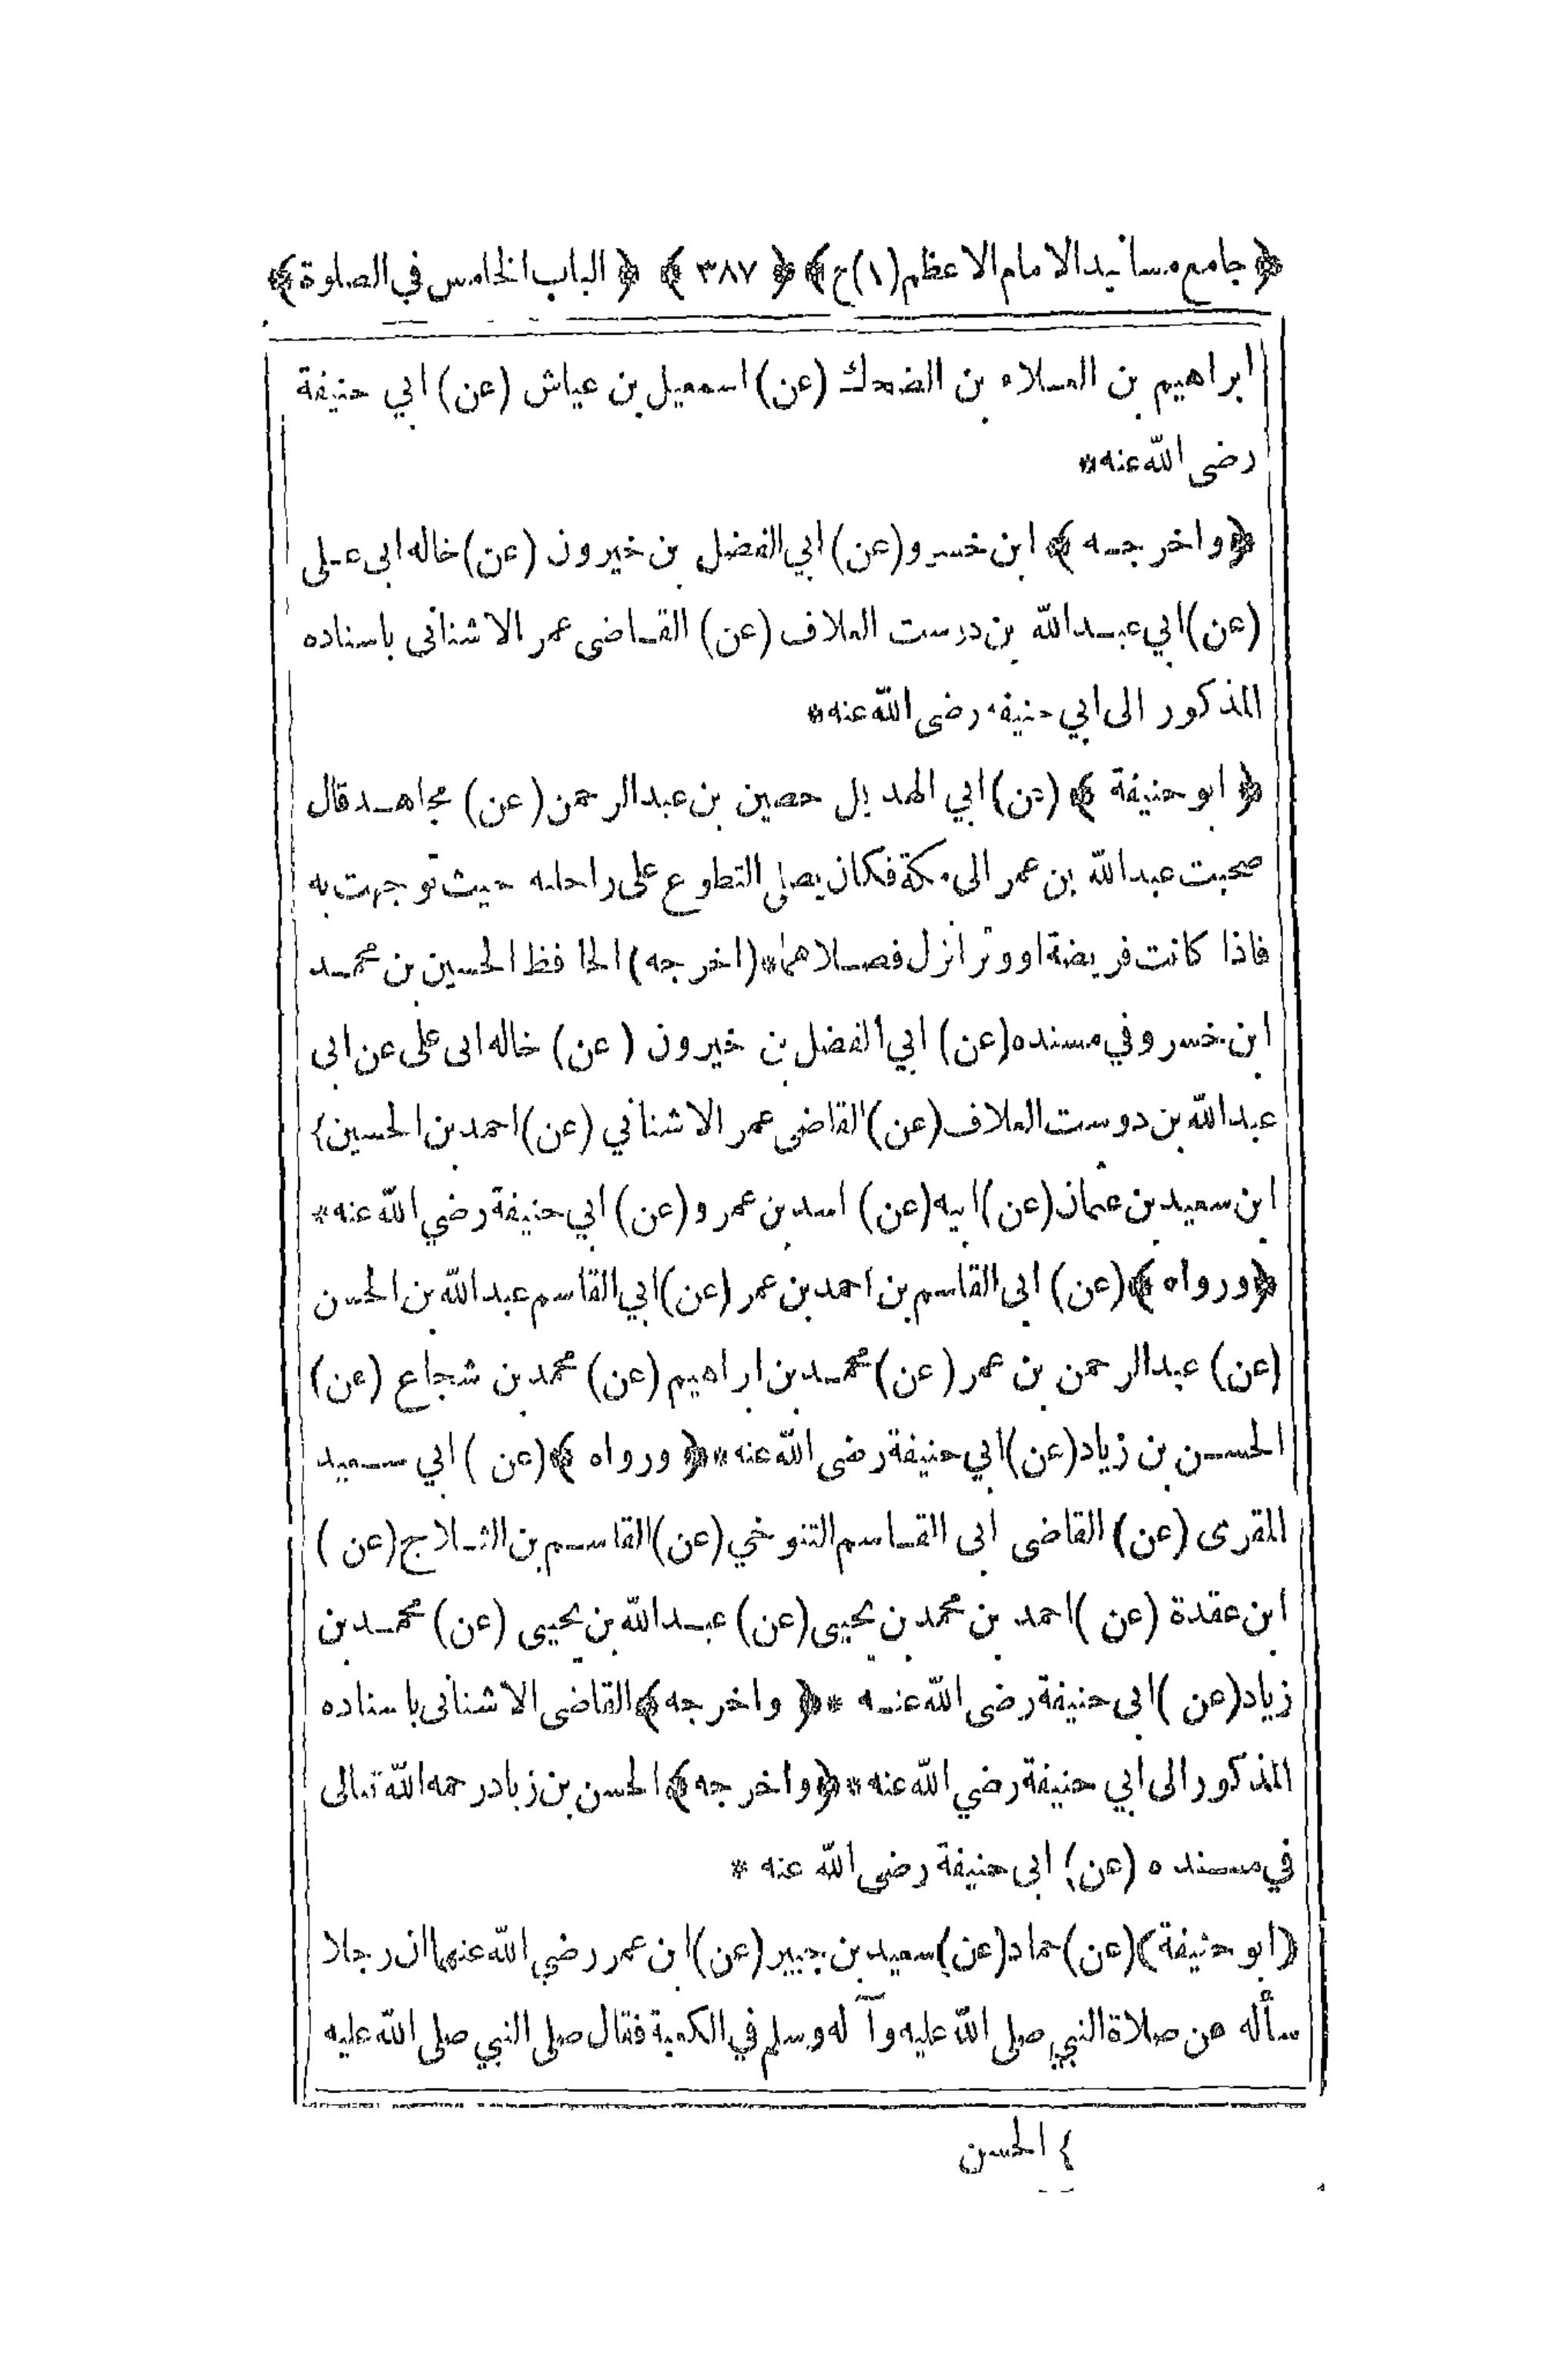 ﴿جامع مسانيد الامام الاعظم (١) ج﴾ ﴿ ٣٨٧ ﴾ ﴿ الباب الخامس في الصلوة ﴾
ابراهيم بن العلاء بن الضحاك (عن) اسمعيل بن عياش (عن) ابي حنيفة
رضى الله عنه *
﴿ واخرجه ﴾ ابن خسرو (عن) ابي الفضل بن خيرون (عن) خاله ابى على
(عن) ابي عبد الله بن درست العلاف (عن) القاضى عمر الاشنانى باسناده
المذكور الى ابي حنيفه رضى الله عنه *
﴿ ابو حنيفة ﴾ (عن) ابي الهديل حصين بن عبد الرحمن (عن) مجاهد قال
صحبت عبد الله بن عمر الى مكة فكان يصلى التطوع على راحلته حيث توجهت به
فاذا كانت فريضة او وتر انزل فصلاهما * (اخرجه) الحافظ الحسين بن محمد
ابن خسرو في مسنده (عن) ابي الفضل بن خيرون (عن) خاله ابى على عن ابى
عبد الله بن دوست العلاف (عن) القاضى عمر الاشناني (عن) احمد بن الحسين }
ابن سعيد بن عثمان (عن) ابيه (عن) اسد بن عمرو (عن) ابي حنيفة رضي الله عنه *
﴿ ورواه ﴾ (عن) ابى القاسم بن احمد بن عمر (عن) ابي القاسم عبد الله بن الحسن
(عن) عبد الرحمن بن عمر (عن) محمد بن ابراهيم (عن) محمد بن شجاع (عن)
الحسن بن زياد (عن) ابي حنيفة رضى الله عنه * ﴿ ورواه ﴾ (عن) ابي سعيد
المقرى (عن) القاضى ابى القاسم التنوخي (عن) القاسم بن الثلاج (عن)
ابن عقدة (عن) احمد بن محمد بن يحيى (عن) عبد الله بن يحيى (عن) محمد بن
زياد (عن) ابى حنيفة رضى الله عنه * ﴿ واخرجه ﴾ القاضى الاشنانى باسناده
المذكور الى ابي حنيفة رضي الله عنه * ﴿ واخرجه ﴾ الحسن بن زياد رحمه الله تعالى
في مسنده (عن) ابى حنيفة رضى الله عنه *
(ابو حنيفة) (عن) حماد (عن) سعيد بن جبير (عن) ابن عمر رضي الله عنهما ان رجلا
سأله عن صلاة النبي صلى الله عليه وآله وسلم في الكعبة فقال صلى النبي صلى الله عليه
} الحسن